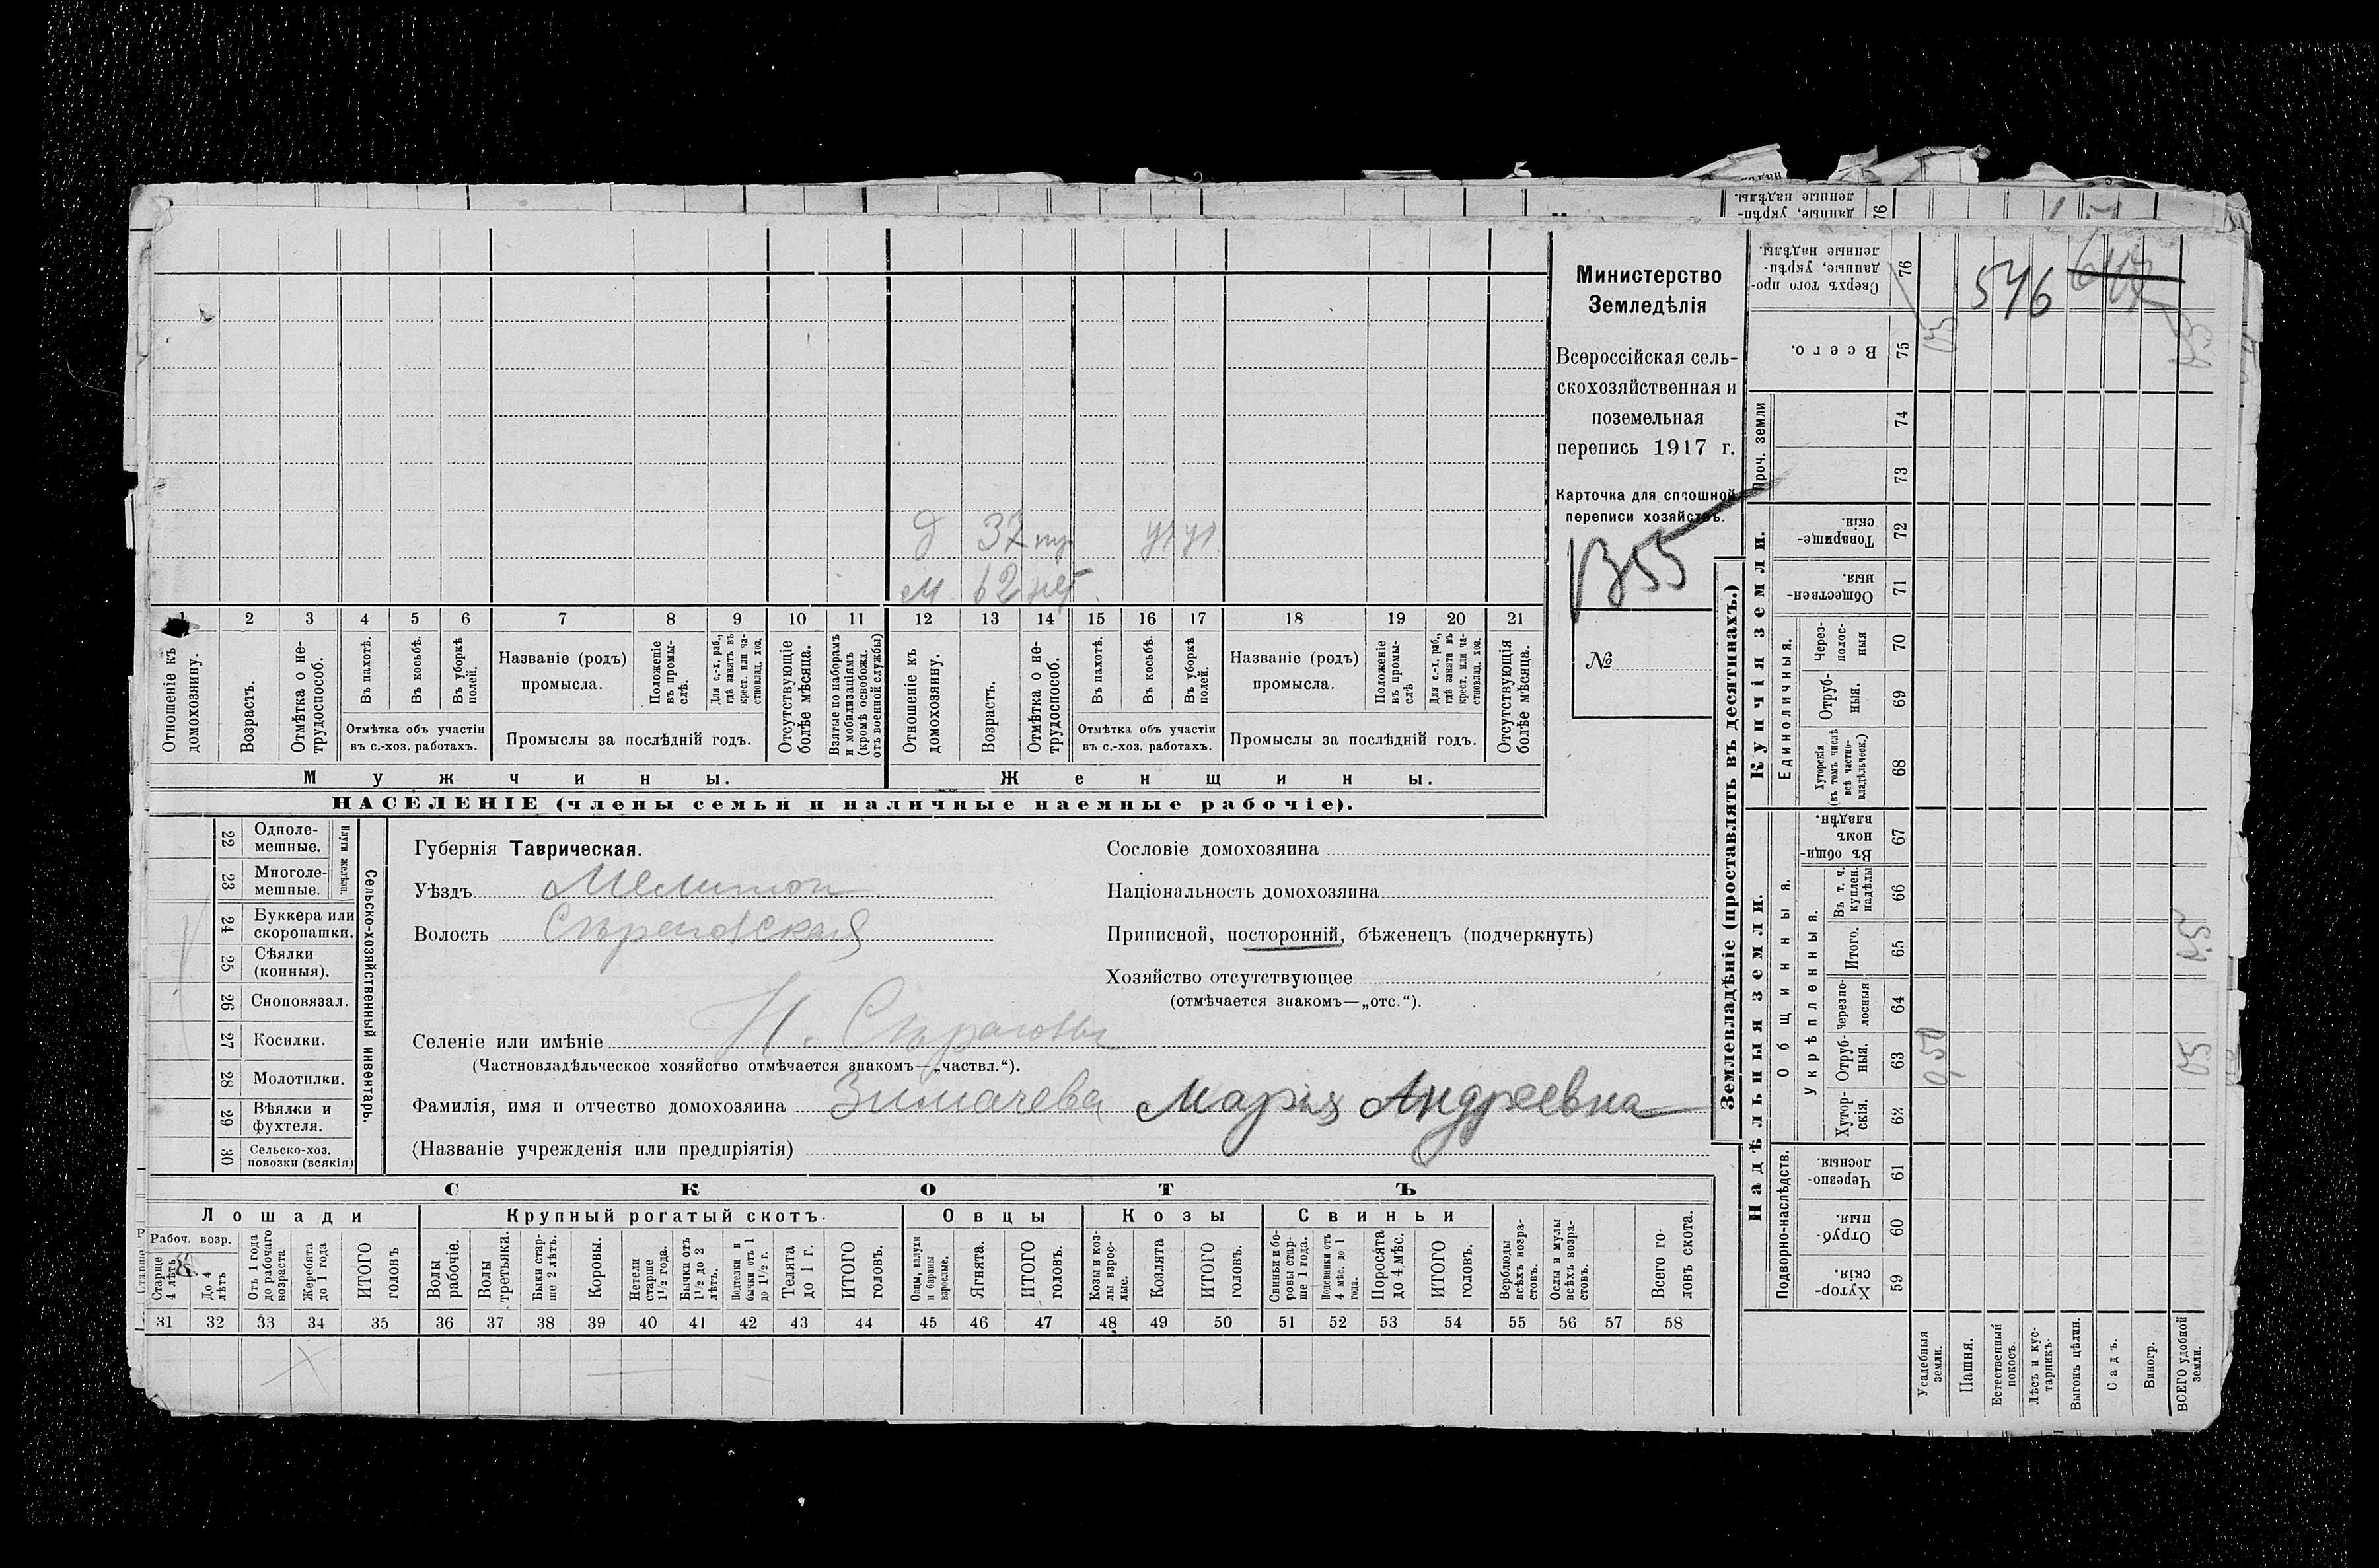 Министерство
Земледѣлія
Всероссійская сель-
скохозяйственная и
поземельная
перепись 1917 г.
Карточка для сплошной
переписи хозяйствъ.
1355
№
д 37 ур ур
м. 62 нет
1 2 3 4 5 6 7 8 9 10 11 12 13 14 15 16 17 18 19 20 21
Отношеніе къ домохозяину.
Возрастъ.
Отмѣтка о не-трудоспособ.
Въ пахотѣ.
Въ косьбѣ.
Въ уборкѣ полей.
Отмѣтка объ участіи
въ с.-хоз. работахъ.
Названіе (родъ)
промысла.
Положеніе въ промы-слѣ.
Для с.-х. раб., гдѣ занятъ въ крест. или ча-стновлад. хоз.
Промыслы за послѣдній годъ.
Отсутствующіе болѣе мѣсяца.
Взятые по наборамъ и мобилизаціямъ (кромѣ освобожд. отъ военной службы)
Отношеніе къ домохозяину.
Возрастъ.
Отмѣтка о не-трудоспособ.
Въ пахотѣ.
Въ косьбѣ.
Въ уборкѣ полей.
Отмѣтка объ участіи
въ с.-хоз. работахъ.
Названіе (родъ)
промысла.
Положеніе въ промы-слѣ
Для с.-х. раб., гдѣ занята въ крест. или ча-стновлад. хоз.
Промыслы за послѣдній годъ.
Отсутствующія болѣе мѣсяца.
Мужчины.
Женщины.
НАСЕЛЕНІЕ (члены семьи и наличные наемные рабочіе).
22 Одноле-мешные.
23 Многоле-мешные.
Плуги желѣзн.
24 Буккера или скоропашки.
25 Сѣялки (конныя).
26 Сноповязал.
27 Косилки.
28 Молотилки.
29 Вѣялки и фухтеля.
30 Сельско-хоз. повозки (всякія)
Сельско-хозяйственный инвентарь.
Губернія Таврическая.
Уѣздъ Мелитоп
Волость Сѣрогозская
Селеніе или имѣніе Н. Сѣрогозы
(Частновладѣльческое хозяйство отмѣчается знакомъ—„частвл.“).
Фамилія, имя и отчество домохозяина Зимачева Марія Андреевна
(Названіе учрежденія или предпріятія)
Сословіе домохозяина
Національность домохозяина
Приписной, посторонній, бѣженецъ (подчеркнуть)
Хозяйство отсутствующее
(отмѣчается знакомъ—„отс.“).
СКОТЪ
Лошади
Крупный рогатый скотъ.
Овцы
Козы
Свиньи
Рабоч. возр.
Старше 4 лѣтъ
До 4 лѣтъ
Отъ 1 года до рабочаго возраста
Жеребята до 1 года
ИТОГО головъ
Волы рабочіе.
Волы третьяки.
Быки стар-ше 2 лѣтъ.
Коровы.
Нетели старше 1½ года.
Бычки отъ 1½ до 2 лѣтъ.
Подтелки и бычки отъ 1 до 1½ г.
Телята до 1 г.
ИТОГО головъ.
Овцы, валухи и бараны взрослые.
Ягнята.
ИТОГО головъ.
Козы и коз-лы взрос-лые.
Козлята
ИТОГО головъ.
Свиньи и бо-ровы стар-ше 1 года.
Подсвинки отъ 4 мѣс. до 1 года.
Поросята до 4 мѣс.
ИТОГО головъ.
Верблюды всѣхъ возра-стовъ.
Ослы и мулы всѣхъ возра-стовъ.
Всего го-ловъ скота.
31 32 33 34 35 36 37 38 39 40 41 42 43 44 45 46 47 48 49 50 51 52 53 54 55 56 57 58
Землевладѣніе (проставлять въ десятинахъ.)
Надѣльныя земли.
Купчія земли.
Проч. земли
Подворно-наслѣдств.
Общинныя.
Укрѣпленныя.
Единоличныя.
76 Сверхъ того про-данные, укрѣп-ленные надѣлы.
546
75 Всего.
05
74
73
72 Товарище-скія.
71 Обществен-ныя.
70 Через-полос-ныя
69 Отруб-ныя.
68 Хуторскія (въ томъ числѣ всѣ частно-владѣльческ.)
67 Въ общин-номъ владѣн.
66 Въ т. ч. куплен. надѣлы
65 Итого.
64 Черезпо-лосныя
63 Отруб-ныя.
0,50
05
62 Хутор-скія.
61 Черезпо-лосныя.
60 Отруб-ныя.
59 Хутор-скія.
Усадебныя земли.
Пашня.
Естественный покосъ.
Лѣсъ и кус-тарникъ.
Выгонъ цѣлин.
Садъ.
Виногр.
ВСЕГО удобной земли.